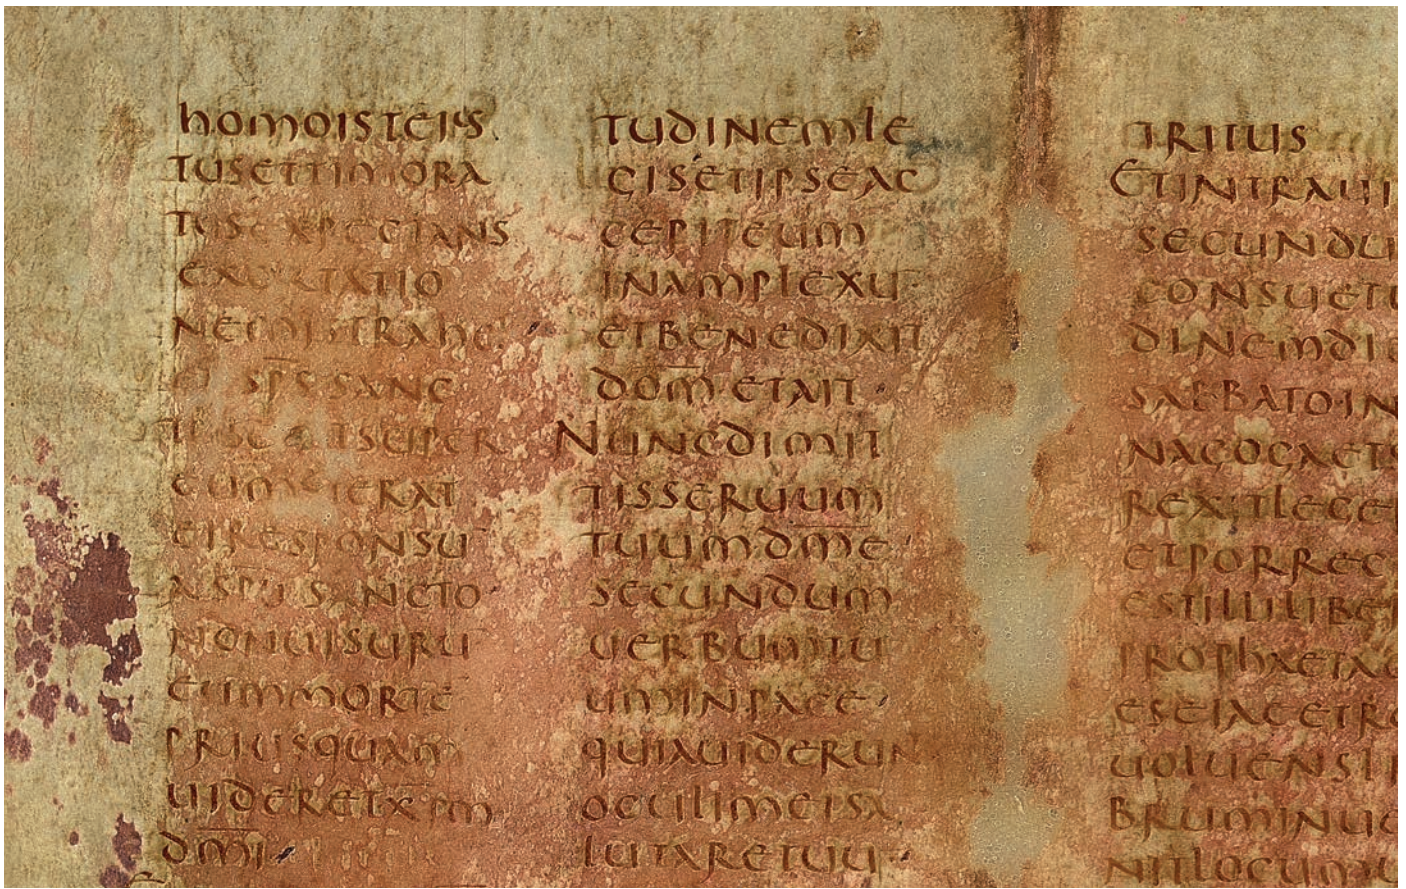 homoisteius
tusettimora
tusexpectans
exortatio
et sps sanc
eum erat
etresponsu
n spu sancto
nonuisuru
em morte
priusquam
uideretxpm
dmi
tudinemle
gisetipseac
cepiteum
inamplexu
etbenedixit
dom etait
Nuncdimit
tisseruum
tuumdme
secundum
uerbumtu
uminpace
quiauiderun
oculimeisa
lutaretuu
iritus
Etintraui
secundu
consuetu
dinemdie
sabbatoin
nagogaets
rexitlege
etporrec
estilliliber
prophaetae
eseiaeetre
uoluensli
bruminue
nitlocumu